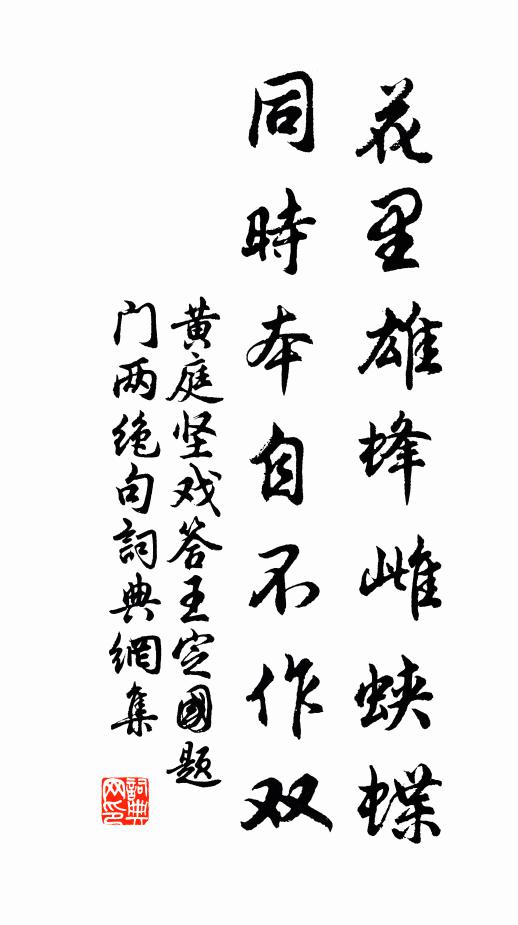 花里雄蜂雌蛱蝶
同時本自不作双
黄庭坚戏答王定國题
门两绝句詞典網集
詞典網印